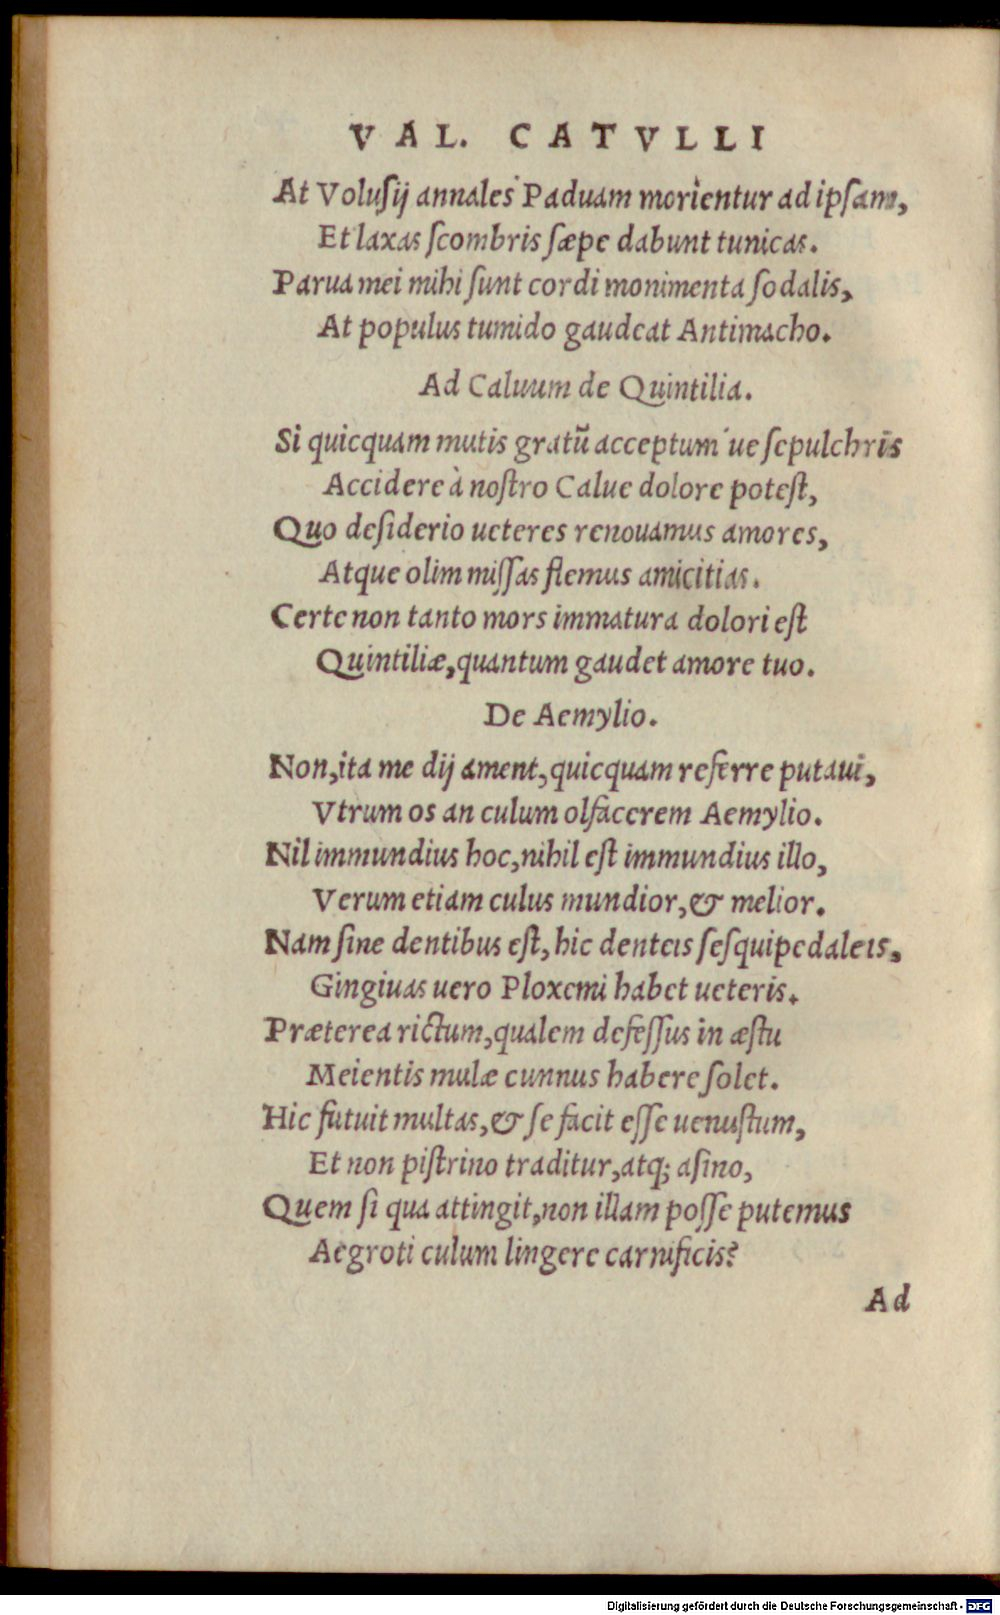 VAL. CATVLLI
At Voluſij annales Paduam morientur ad ipſam,
Et laxas ſcombris ſæpe dabunt tunicas.
Parua mei mihi ſunt cordi monimenta ſodalis,
At populus tumido gaudeat Antimacho.
Ad Caluum de Quintilia.
Si quicquam mutis gratū acceptum ue ſepulchris
Accidere à noſtro Calue dolore poteſt,
Quo deſiderio ueteres renouamus amores,
Atque olim miſſas flemus amicitias.
Certe non tanto mors immatura dolori eſt
Quintiliæ, quantum gaudet amore tuo.
De Aemylio.
Non, ita me dij ament, quicquam referre putaui,
Vtrum os an culum olfacerem Aemylio.
Nil immundius hoc, nihil eſt immundius illo,
Verum etiam culus mundior, & melior.
Nam ſine dentibus eſt, hic denteis ſeſquipedaleis,
Gingiuas uero Ploxemi habet ueteris.
Præterea rictum, qualem defeſſus in æſtu
Meientis mulæ cunnus habere ſolet.
Hic futuit multas, & ſe facit eſſe uenuſtum,
Et non piſtrino traditur, atq; aſino,
Quem ſi qua attingit, non illam poſſe putemus
Aegroti culum lingere carnificis?
Ad
Digitalisierung gefördert durch die Deutsche Forschungsgemeinschaft - DFG